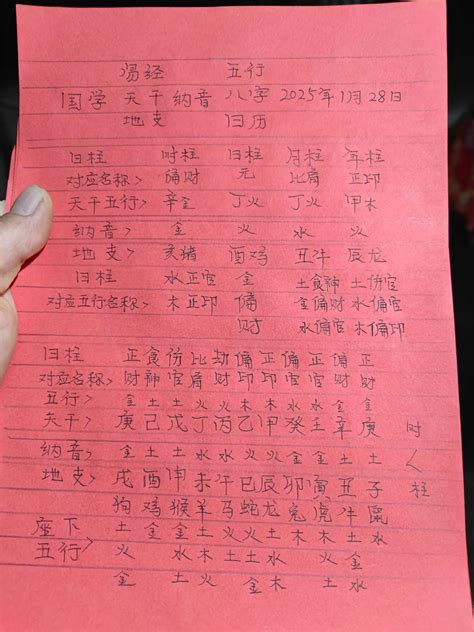 易经 五行
国学 天干纳音 八字 2025年1月28日
地支 日历
日柱 时柱 日柱 月柱 年柱
对应名称> 偏财 元 比肩 正印
天干五行> 辛金 丁火 丁火 甲木
纳音> 金 火 水 火
地支> 亥猪 酉鸡 丑牛 辰龙
日柱 水正官 金 土食神 土伤官
对应五行名称> 木正印 偏 金偏财 水偏官
财 水偏官 木偏印
日柱 正食伤比劫偏正偏正偏正
对应名称> 财神官肩财印印官官财财
五行> 金土土火火木木水水金金
天干> 庚己戊丁丙乙甲癸壬辛庚 时
纳音> 金土土水水火火金金土土 人
地支> 戌酉申未午巳辰卯寅丑子 柱
狗鸡猴羊马蛇龙兔虎牛鼠
座下 土金金土火火土木木土水
五行> 火 水木土土水 火金
金 土火 金木 土水